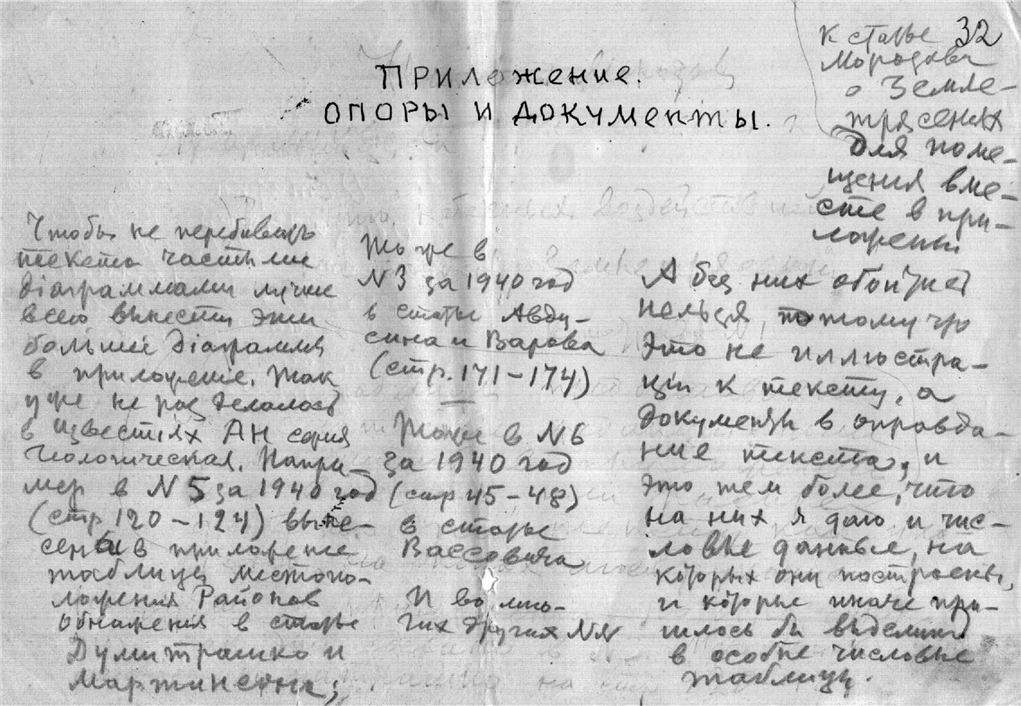 32
К статье
Морозова
о Земле-
трясениях
Для поме-
щения вме-
сте в при-
ложеньи
Приложение.
ОПОРЫ И ДОКУМЕНТЫ.
Чтобы не перебивать
текста частыми
діаграммами лучше
всего вынести эти
большие діаграммы
в приложеніе. Так
уже не раз делалось
в Известіях АН серия
Геологическая. Напри-
мер в N 5 за 1940 год
(стр. 120-124) выне-
сены в приложеніе
таблицы местопо-
ложения Районов
обнажения в статье
Думитрашко и
Мартинсона;
Тоже в
N 3 за 1940 год
в статье Авду-
сина и Варова
(стр. 171-174)
Тоже в N 6
за 1940 год
(стр 45-48)
в статье
Вассовича
И во мно-
гих других NN
А без них обойтись
нельзя потому что
это не иллюстра-
ціи к тексту, а
документы в оправда-
ние текста, и
это тем более, что
на них я даю и чис-
ловые данные, на
которых они построены,
и которые иначе при-
шлось бы выделить
в особые числовые
таблицы.